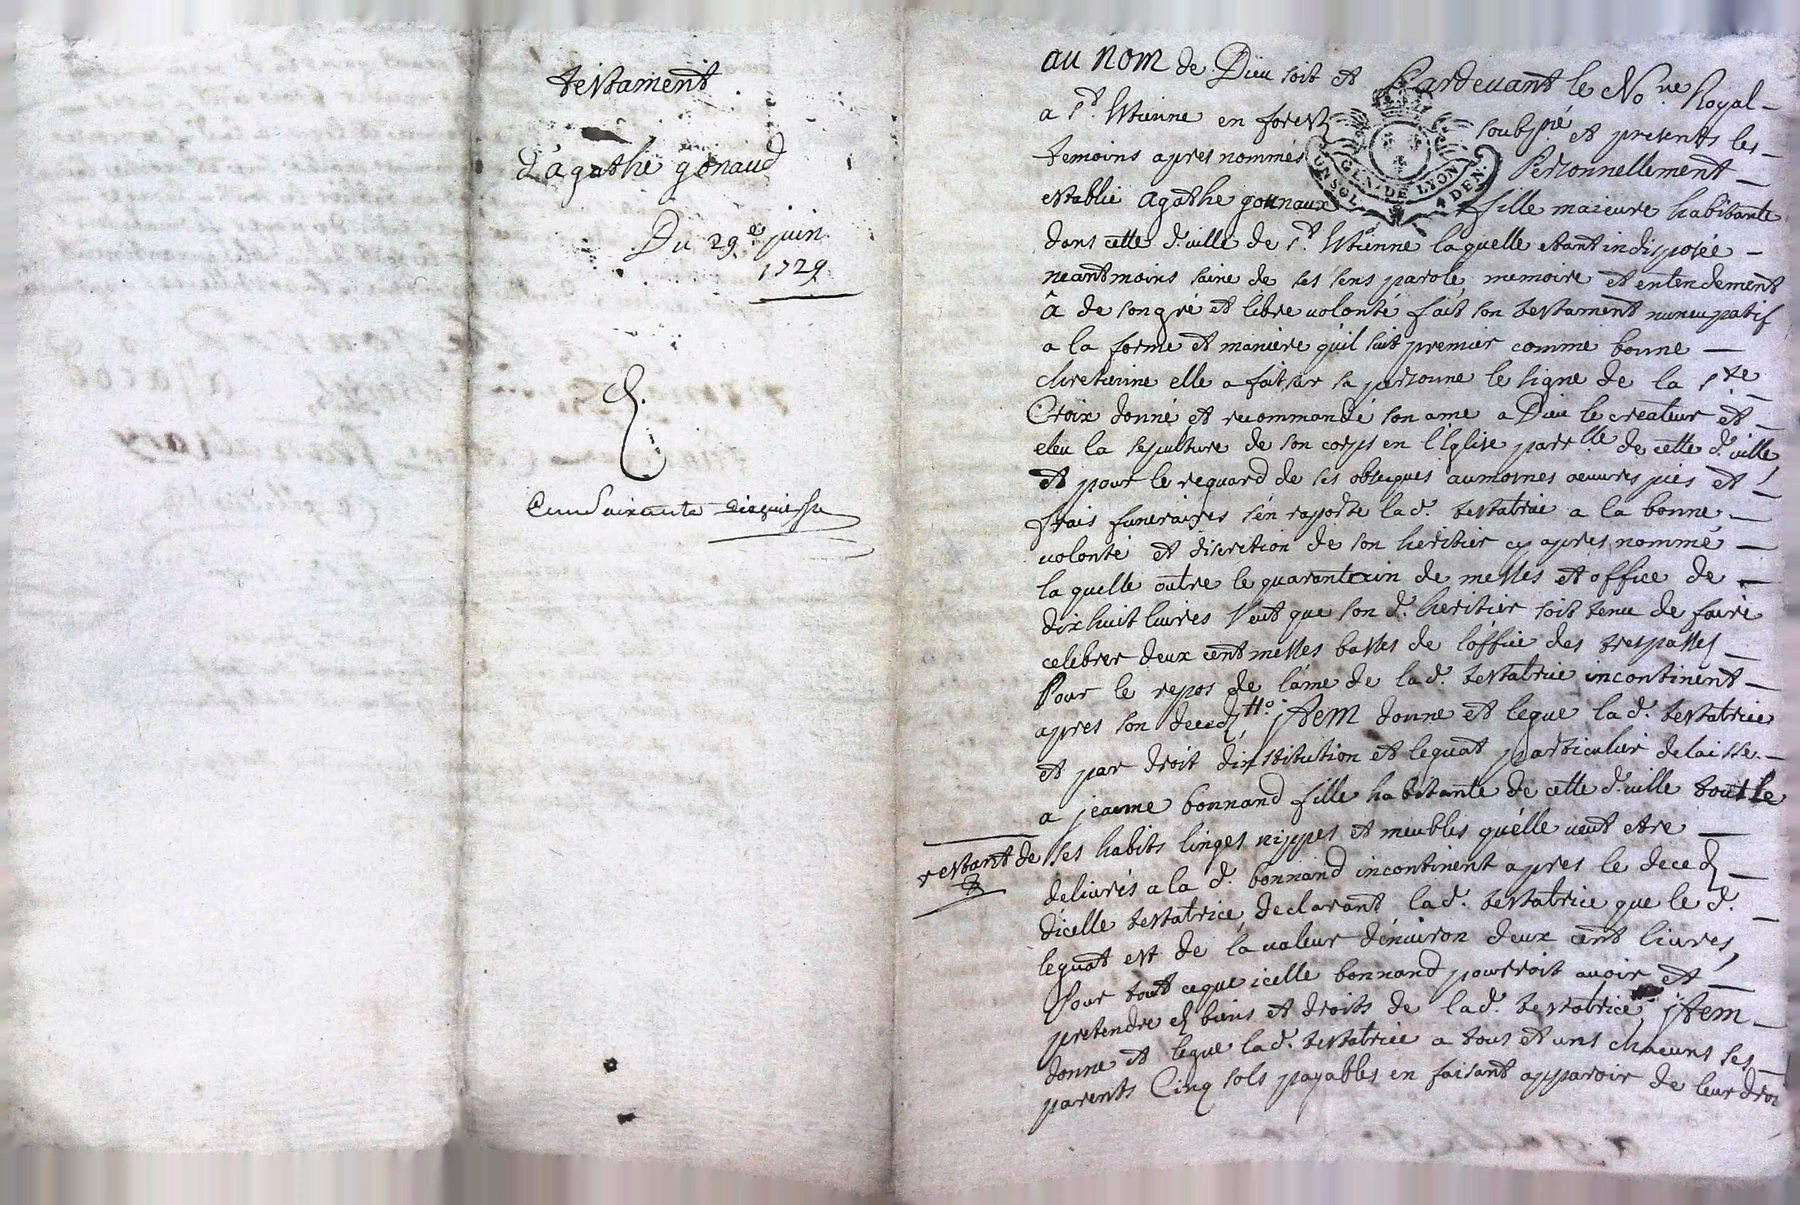 testament
d'agathe gonaud
Du 29e juin
1729
Cent Soixante dix
au nom de Dieu soit et Pardevant le Nore Royal
a St. Etienne en forest soubsné et presents les
temoins apres nommés Personnellement
establie agathe gonnaux fille majeure habitante
dans cette d. ville de St. Etienne laquelle etant indisposée
neantmoins saine de ses sens parole memoire et entendement
â de son gré et libre volonté fait son testament nuncupatif
a la forme et maniere quil suit premier comme bonne
chretienne elle a fait sur sa personne le signe de la Ste
Croix donné et recommandé son ame a Dieu le createur et
eleu la sepulture de son corps en l'Eglise parrlle de cette d. ville
et pour le reguard de ses obseques aumosnes oeuvres pies et
frais funeraires s'en raporte lad. testatrice a la bonne
volonté et discretion de son heritier cy apres nommé
laquelle outre le quarantain de messes et office de
dixhuit livres veut que son d. heritier soit tenu de faire
celebrer deux cent messes basses de l'office des trespassés
Pour le repos de l'ame de lad. testatrice incontinent
apres son deced tto. jtem donne et legue lad. testatrice
et par droit d'institution et leguat particulier delaisse
a jeanne bonnand fille habitante de cette d. ville tout le
restant de ses habits linges nippes et meubles qu'elle veut etre
delivrés a la d. bonnand incontinent apres le deced
d'icelle testatrice declarant lad. testatrice que le d.
leguat est de la valeur d'environ deux cent livres,
Pour tout ce que icelle bonnand pourroit avoir et
pretendre es biens et droits de lad. testatrice, jtem
donne et legue lad. testatrice a tous et uns chacuns ses
parents Cinq sols payables en faisant apparoir de leur droi
GEN. DE LYON